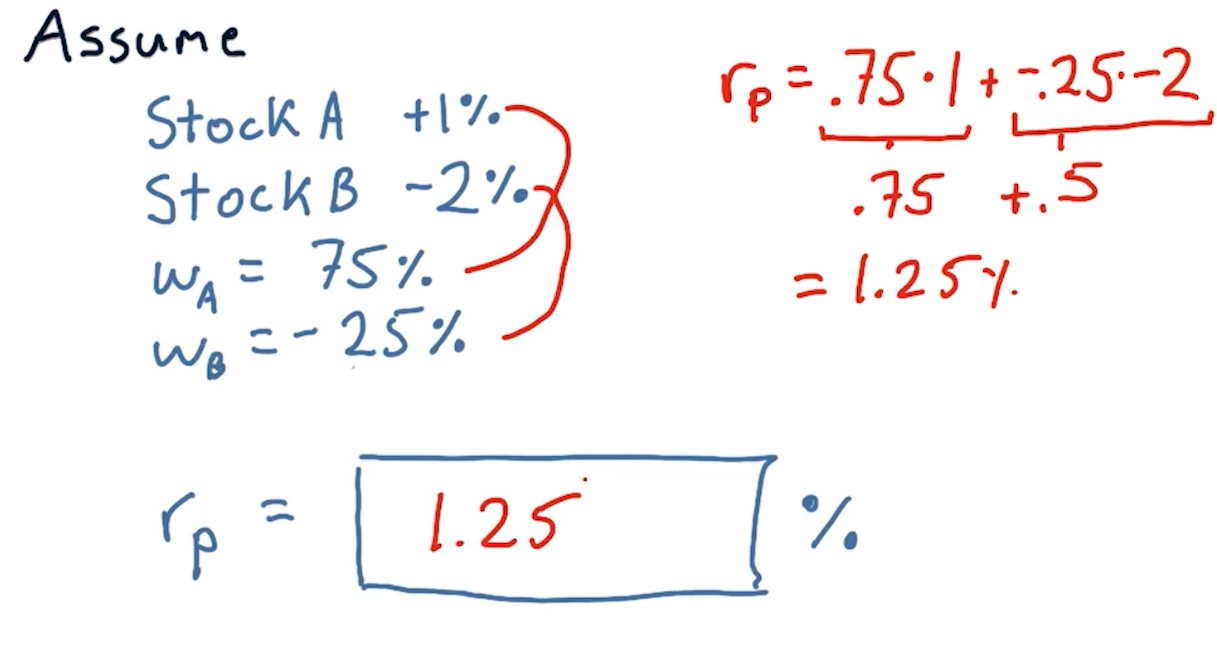 Assume
Stock A +1%
Stock B -2%
wA = 75%
wB = -25%
rp = .75·1 + -.25·-2
.75 +.5
= 1.25%
rp = 1.25 %